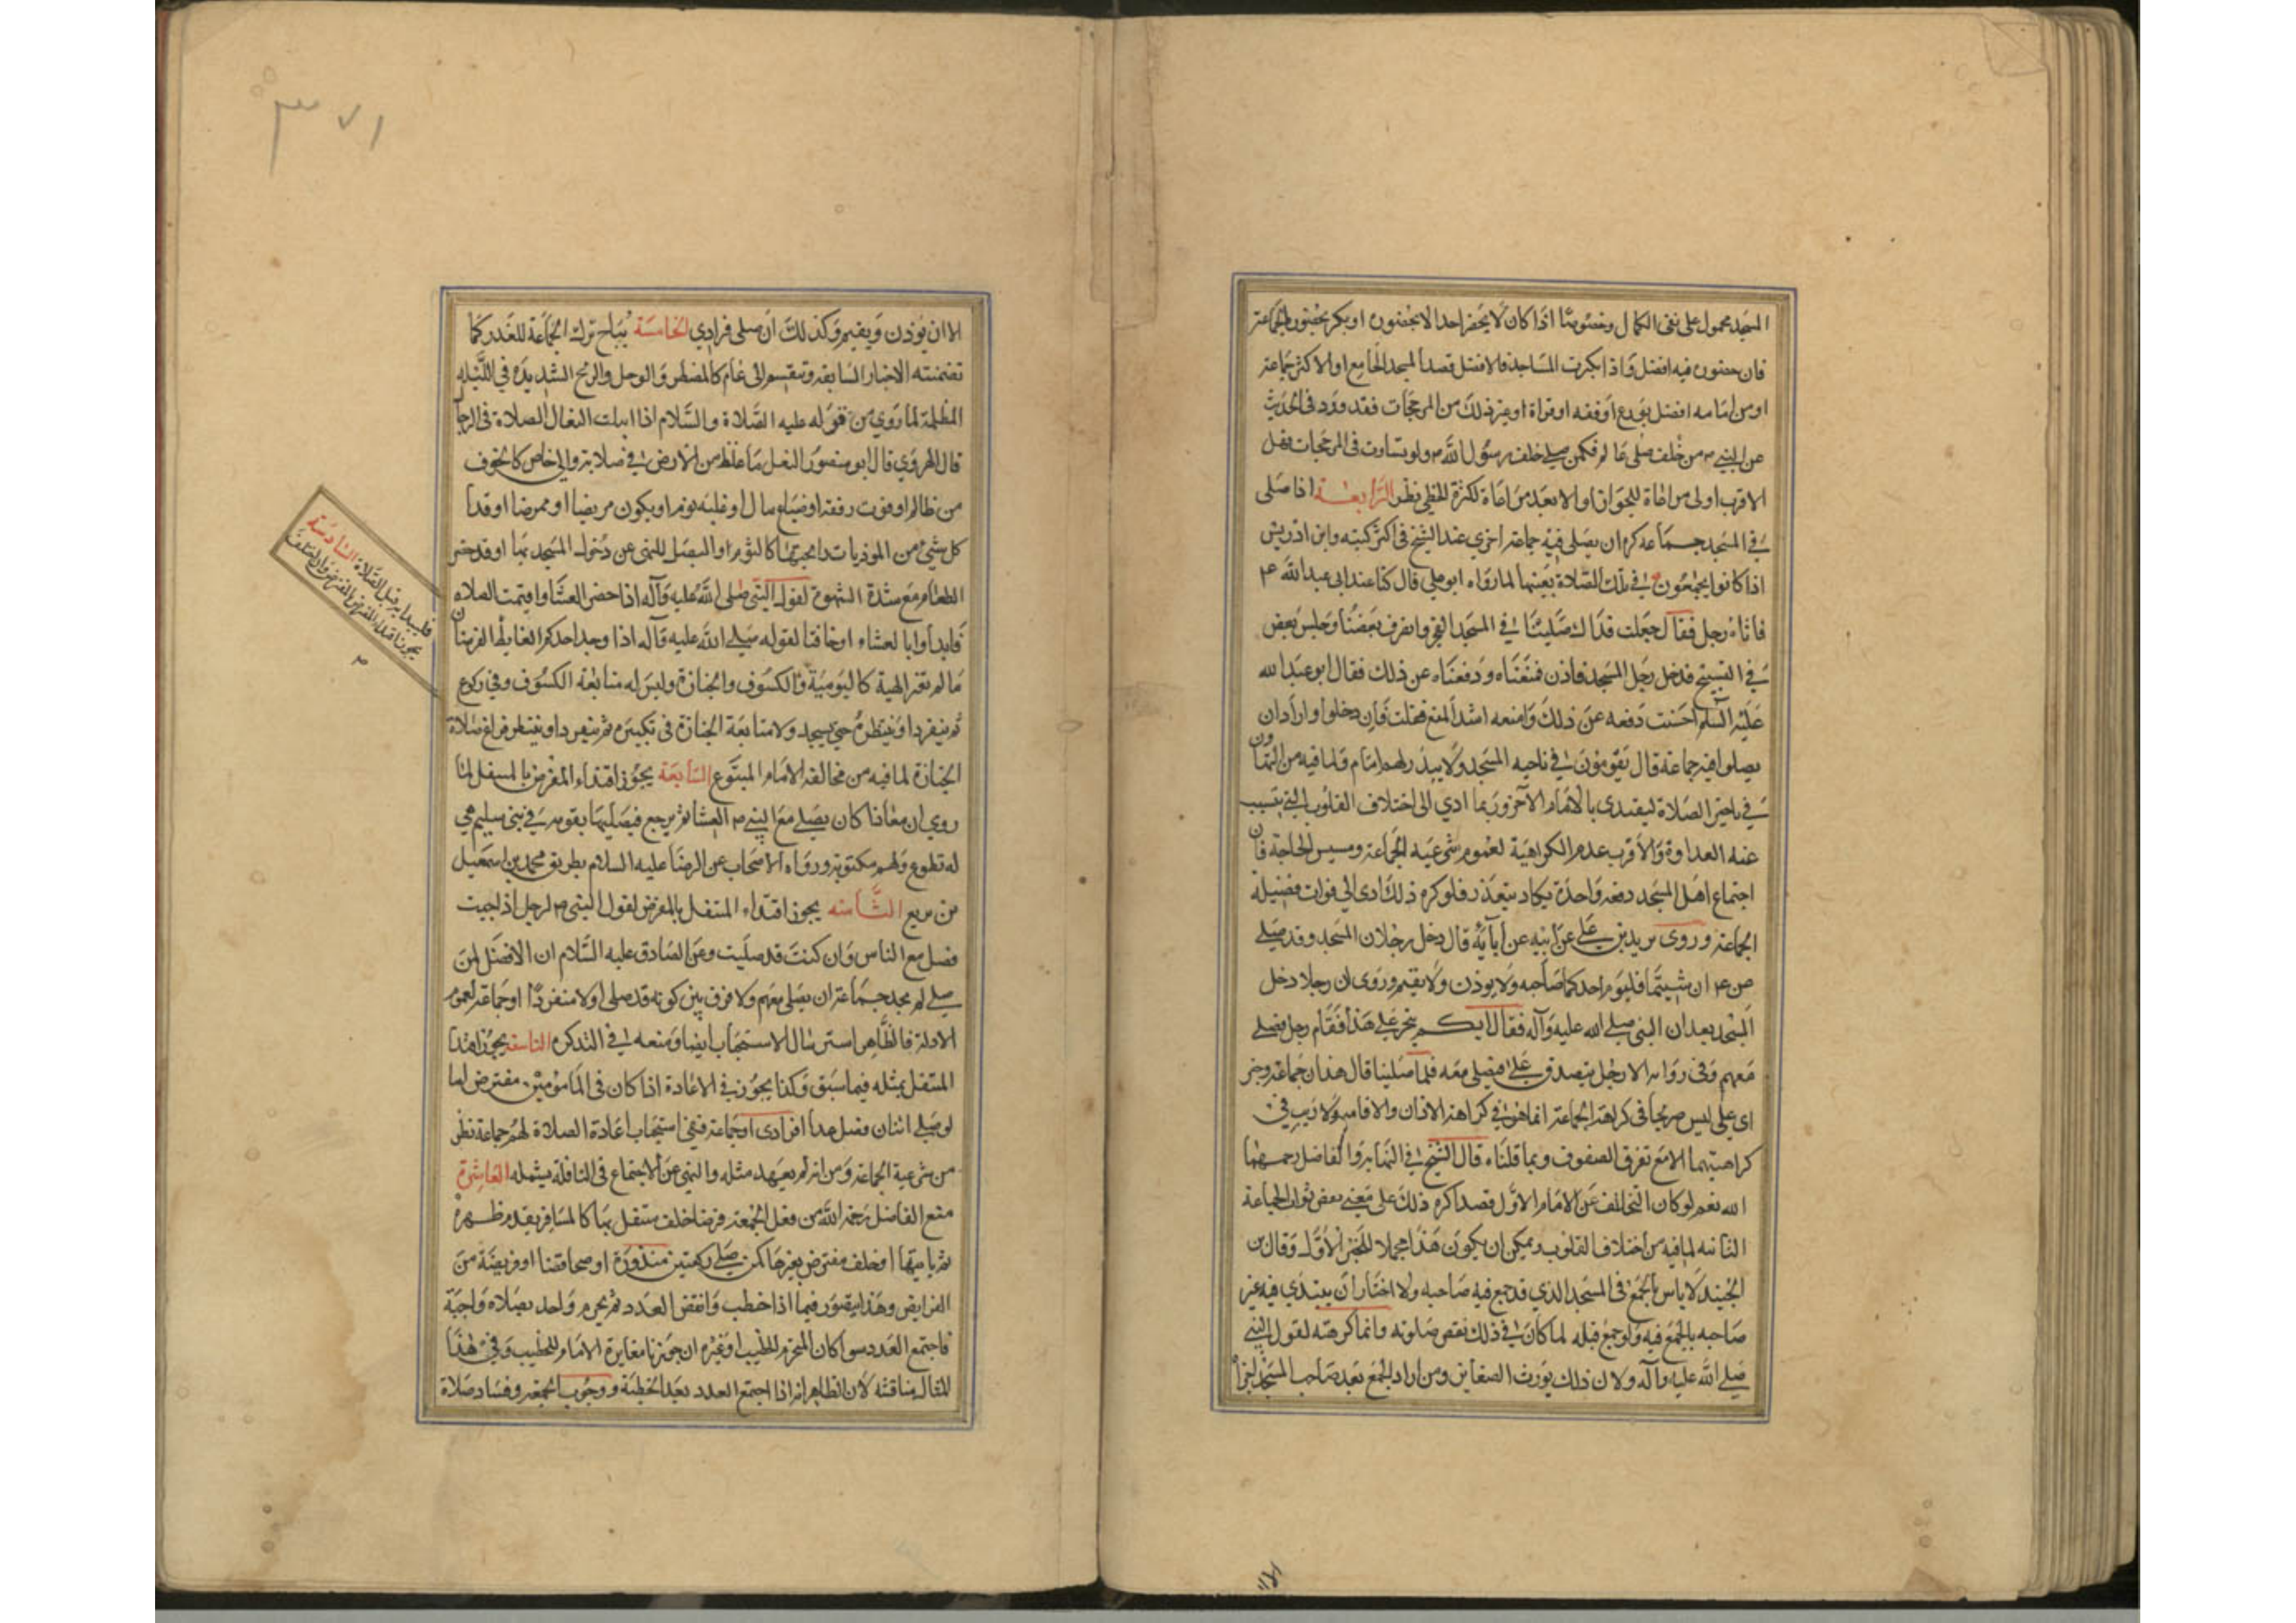 المسجد محمول على نفى الكمال وخصوصا اذا كان لا يحضر احد الا بحضوره او يكثر بحضوره الجماعة
فان حضوره فيه افضل واذا كثرت المساجد فالافضل قصد المسجد الجامع او الاكثر جماعة
او من امامه افضل بورع او فقه او قراة او غير ذلك من المرجحات فقد ورد فى الحديث
عن النبي ص من صلى خلف عالم فكمن صلى خلف رسول الله ص ولو تساوت فى المرجحات فهل
الاقرب اولى مراعاة للجوار او الابعد مراعاة لكثرة الخطى نظر الرابعة اذا صلى
في المسجد جماعة كره ان يصلى فيه جماعة اخري عند الشيخ فى اكثر كتبه وابن ادريس
اذا كانوا يجمعون في تلك الصلاة بعينها لما رواه ابو علي قال كنا عند ابى عبد الله ع
فاتاه رجل فقال جعلت فداك صلينا في المسجد الفجر وانصرف بعضنا وجلس بعض
في التسبيح فدخل رجل المسجد فاذن فمنعناه ودفعناه عن ذلك فقال ابو عبد الله
عليه السلم احسنت دفعه عن ذلك وامنعه اشد المنع فقلت فان دخلوا وارادوا ان
يصلوا فيه جماعة قال يقومون في ناحيه المسجد ولا يبدر لهم امام ولما فيه من التهاون
في تاخير الصلاة ليقتدى بالامام الآخر وربما ادي الى اختلاف القلوب التي بسبب
عنه العداوة والاقرب عدم الكراهية لعموم شرعية الجماعة ومسيس الحاجة فان
اجتماع اهل المسجد دفعة واحدة يكاد يتعذر فلو كره ذلك ادى الي فوات فضيلة
الجماعة وروى زيد بن علي عن ابيه عن آبايه قال دخل رجلان المسجد وقد صلى
ص ع ان شيتما فليؤم احدكما صاحبه ولا يوذن ولا يقيم وروى ان رجلا دخل
المسجد بعد ان النبى صلى الله عليه وآله فقال ايكم يتجر على هذا فقام رجل فصلى
معهم وفى رواية الا رجل يتصدق على فيصلى معه فلما صلينا قال هذان جماعة وخبر
ابى على ليس صريحا فى كراهة الجماعة انما هو في كراهة الاذان والاقامة ولا ريب في
كراهيتهما الا مع تفرق الصفوف وبما قلناه قال الشيخ في النهاية والفاضل رحمهما
الله نعم لو كان التخلف عن الامام الاول قصدا كره ذلك على معنى نقص ثواب الجماعة
الثانيه لما فيه من اختلاف القلوب ويمكن ان يكون هذا محملا للخبر الاول وقال بن
الجنيد لا باس بالجمع فى المسجد الذي قد جمع فيه صاحبه ولا اختار ان يبتدي فيه غير
صاحبه بالجمع فيه ولو جمع قبله لما كان في ذلك نقص صلوته وانما كرهته لقول النبي
صلى الله عليه وآله ولان ذلك يورث الضغاين ومن اراد الجمع بعد صاحب المسجد لم
الا ان يوذن ويقيم وكذلك ان صلى فرادي الخامسة يباح ترك الجماعة للعذر كما
تضمنته الاخبار السابقة وتنقسم الى عام كالمطر والوحل والريح الشديدة في الليلة
المظلمة لما روي من قوله عليه الصلاة والسلام اذا ابتلت النعال فالصلاة فى الرحال
قال الهروي قال ابو منصور النعل ما غلظ من الارض في صلابة والى خاص كالخوف
من ظالم او فوت رفقة او ضياع مال او غلبة نوم او يكون مريضا او ممرضا او قد ا
كل شيء من الموذيات رايحتها كالثوم او البصل للنهى عن دخول المسجد بها او قد حضر
الطعام مع شدة الشهوة لقول النبى صلى الله عليه وآله اذا حضر العشا واقيمت الصلاه
فابدأوا بالعشاء او حاقنا لقوله صلى الله عليه وآله اذا وجد احدكم الغايط
فليبدا به قبل الصلاة السادسة
يجوز اقتداء المفترض بالمفترض وان اختلفت
ما لم تتغير الهيئة كاليومية والكسوف والجنازة وليس له متابعة الكسوف وفي ركوع
ثم ينفرد او ينتظره حتى يسجد ولا متابعة الجنازة فى تكبيرة ثم ينفرد او ينتظر فراغ صلاة
الجنازة لما فيه من مخالفة الامام المتبوع السابعة يجوز اقتداء المفترض بالمتنفل لما
روي ان معاذا كان يصلى مع النبي ص العشا ثم يرجع فيصليها بقومه في بنى سليم هي
له تطوع ولهم مكتوبة ورواه الاصحاب عن الرضا عليه السلام بطريق محمد بن اسمعيل
بن بزيع الثامنه يجوز اقتداء المتنفل بالمفترض لقول النبى ص لرجل اذا جيت
فصل مع الناس وان كنت قد صليت وعن الصادق عليه السلام ان الافضل لمن
صلى ثم يجد جماعة ان يصلى معهم ولا فرق بين كونه قد صلى اولا منفردا او جماعة لعموم
الادلة فالظاهر استرسال الاستحباب ايضا ومنعه في التذكره التاسعة يجوز اقتدا
المتنفل بمثله فيما سبق وكذا يجوز في الاعادة اذا كان فى المامومين مفترض اما
لو صلى اثنان فصاعدا فرادى او جماعة ففى استحباب اعادة الصلاة لهم جماعة نظر
من شرعية الجماعة ومن انه لم يعهد مثله والنهى عن الاجتماع فى النافلة يشمله العاشرة
منع الفاضل رحمه الله من فعل الجمعة فرضا خلف متنفل بها كالمسافر يقدم ظهره
ثم ياتيها او خلف مفترض بغيرها كمن صلى ركعتين منذورة او صبحا قضا او فريضة من
الفرايض وهذا يتصور فيما اذا خطب وانفض العدد ثم يحرم واحد بصلاه واجبة
فاجتمع العدد سوا كان المتحرم الخطيب او غيره ان جوزنا مغايرة الامام للخطيب وفى هذا
المثال مناقشة لان الظاهر انه اذا اجتمع العدد بعد الخطبة ووجوب الجمعة وفساد صلاة
٣٧١